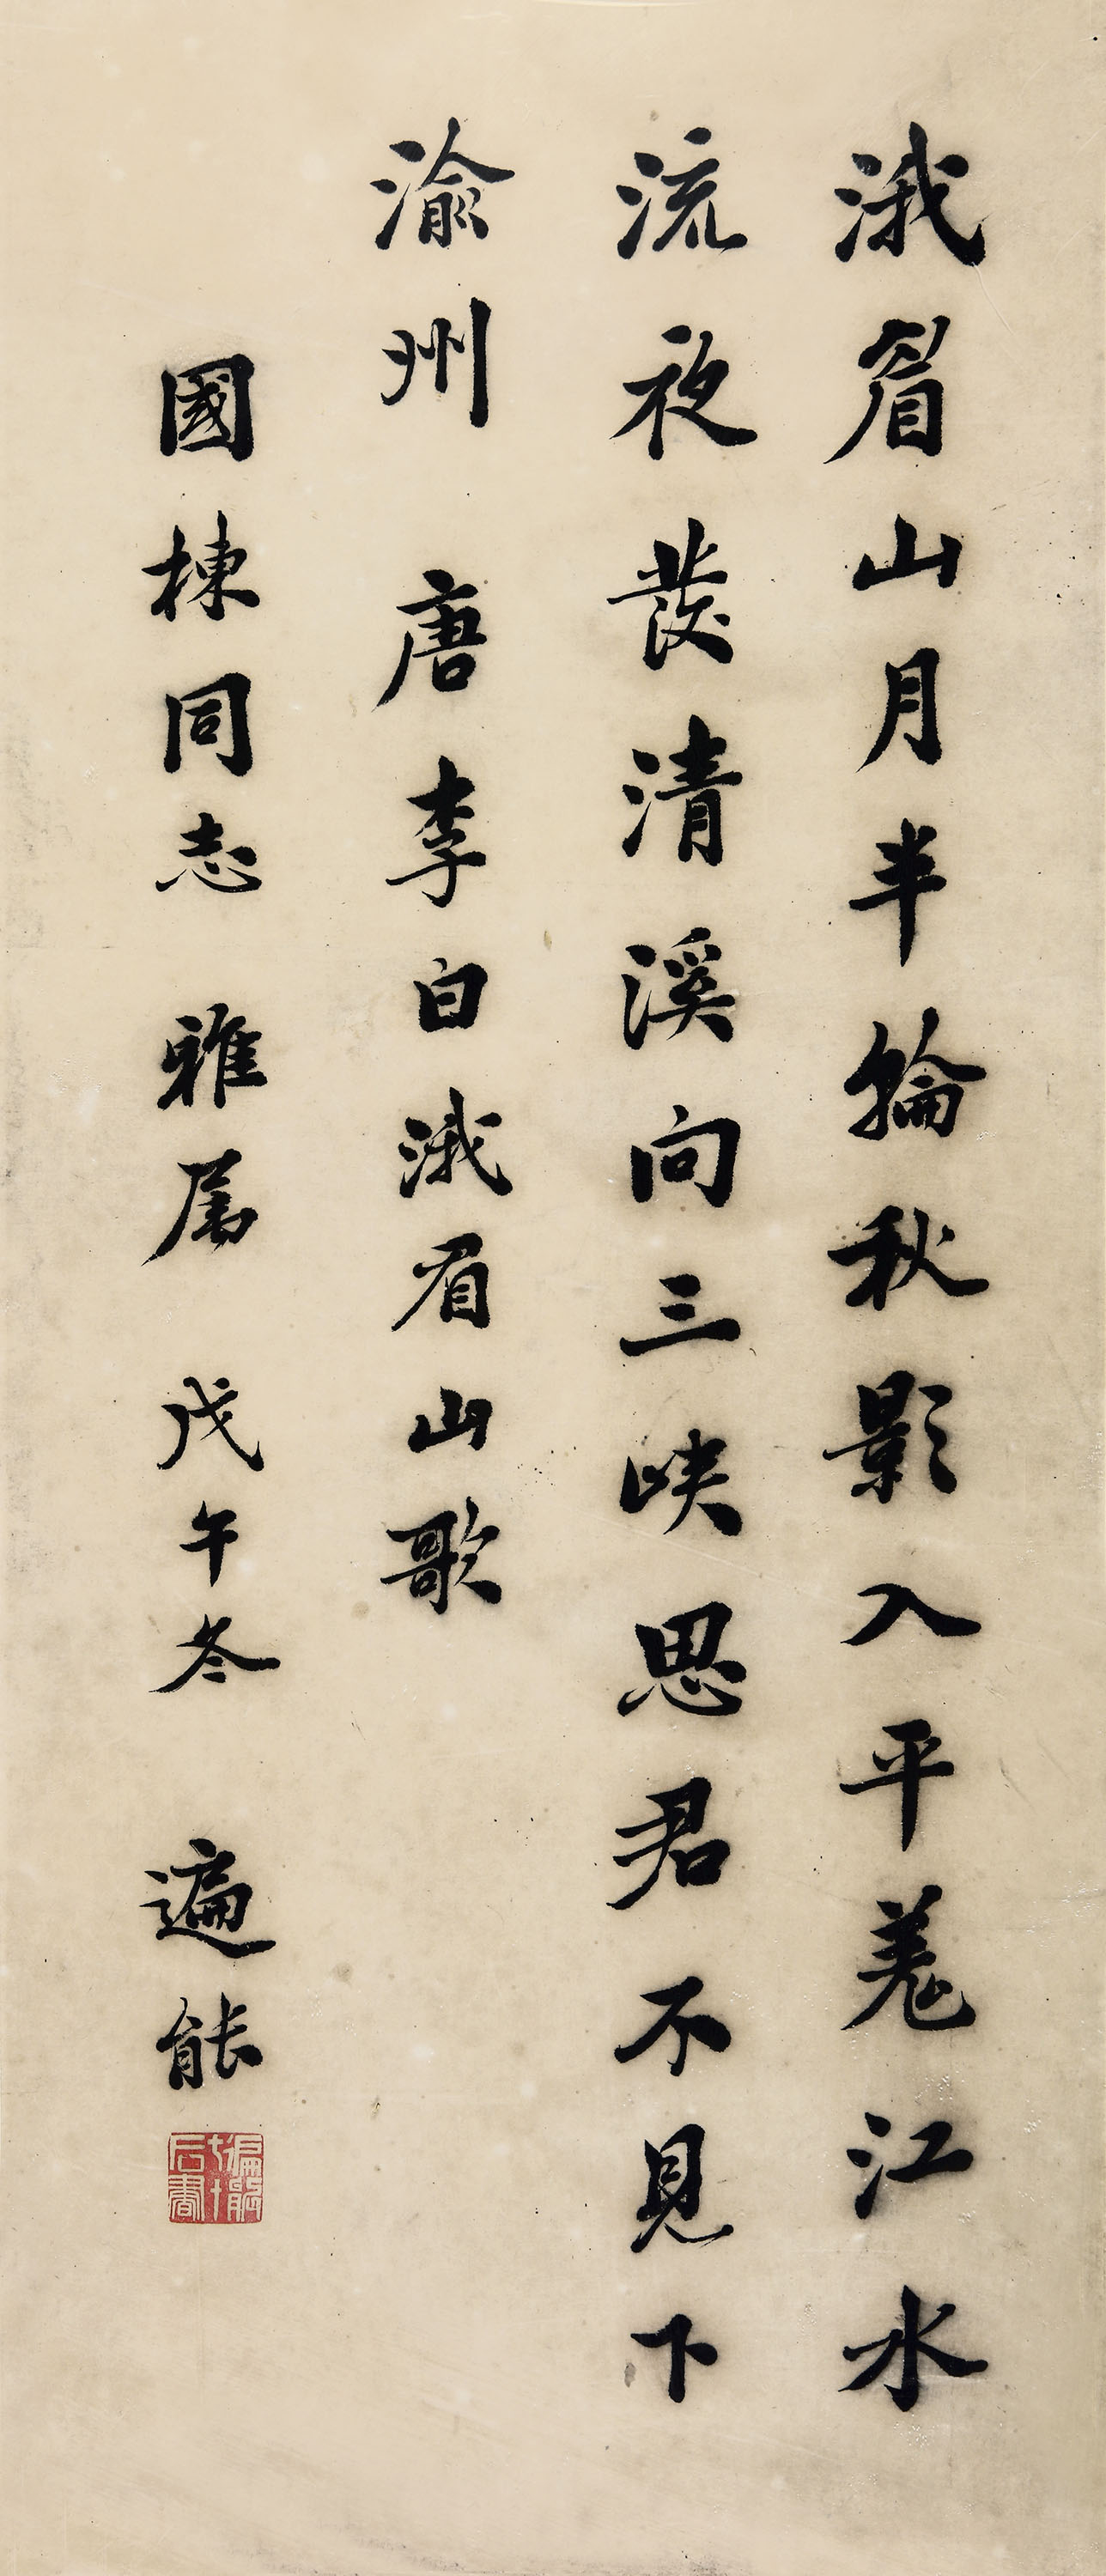 涐睂山月半輪秋影入平羗江水
流夜發清溪向三峽思君不見下
渝州 唐李白涐眉山歌
國棟同志 雅属 戊午冬 遍能